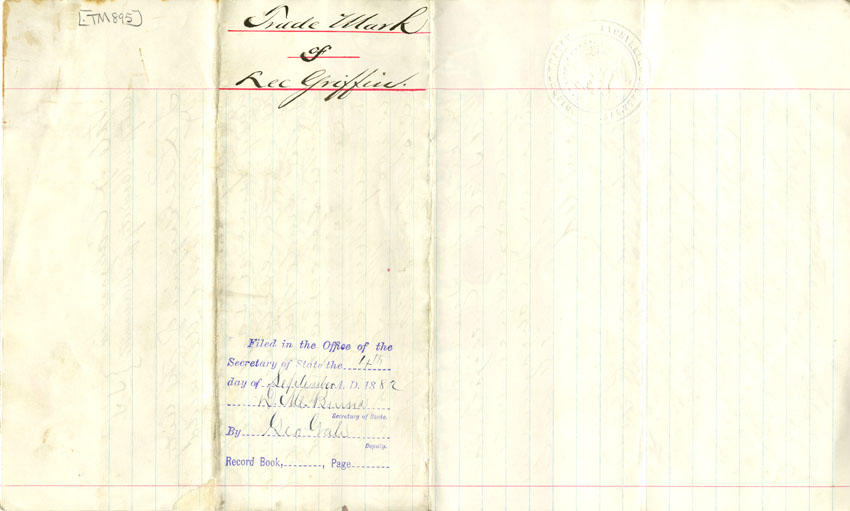 [TM895]
Trade Mark
of
Lee Griffin.
Filed in the Office of the
Secretary of State the 4th
day of September A. D. 1882
D. M. Burns
Secretary of State.
By Geo Gale
Deputy.
Record Book, , Page